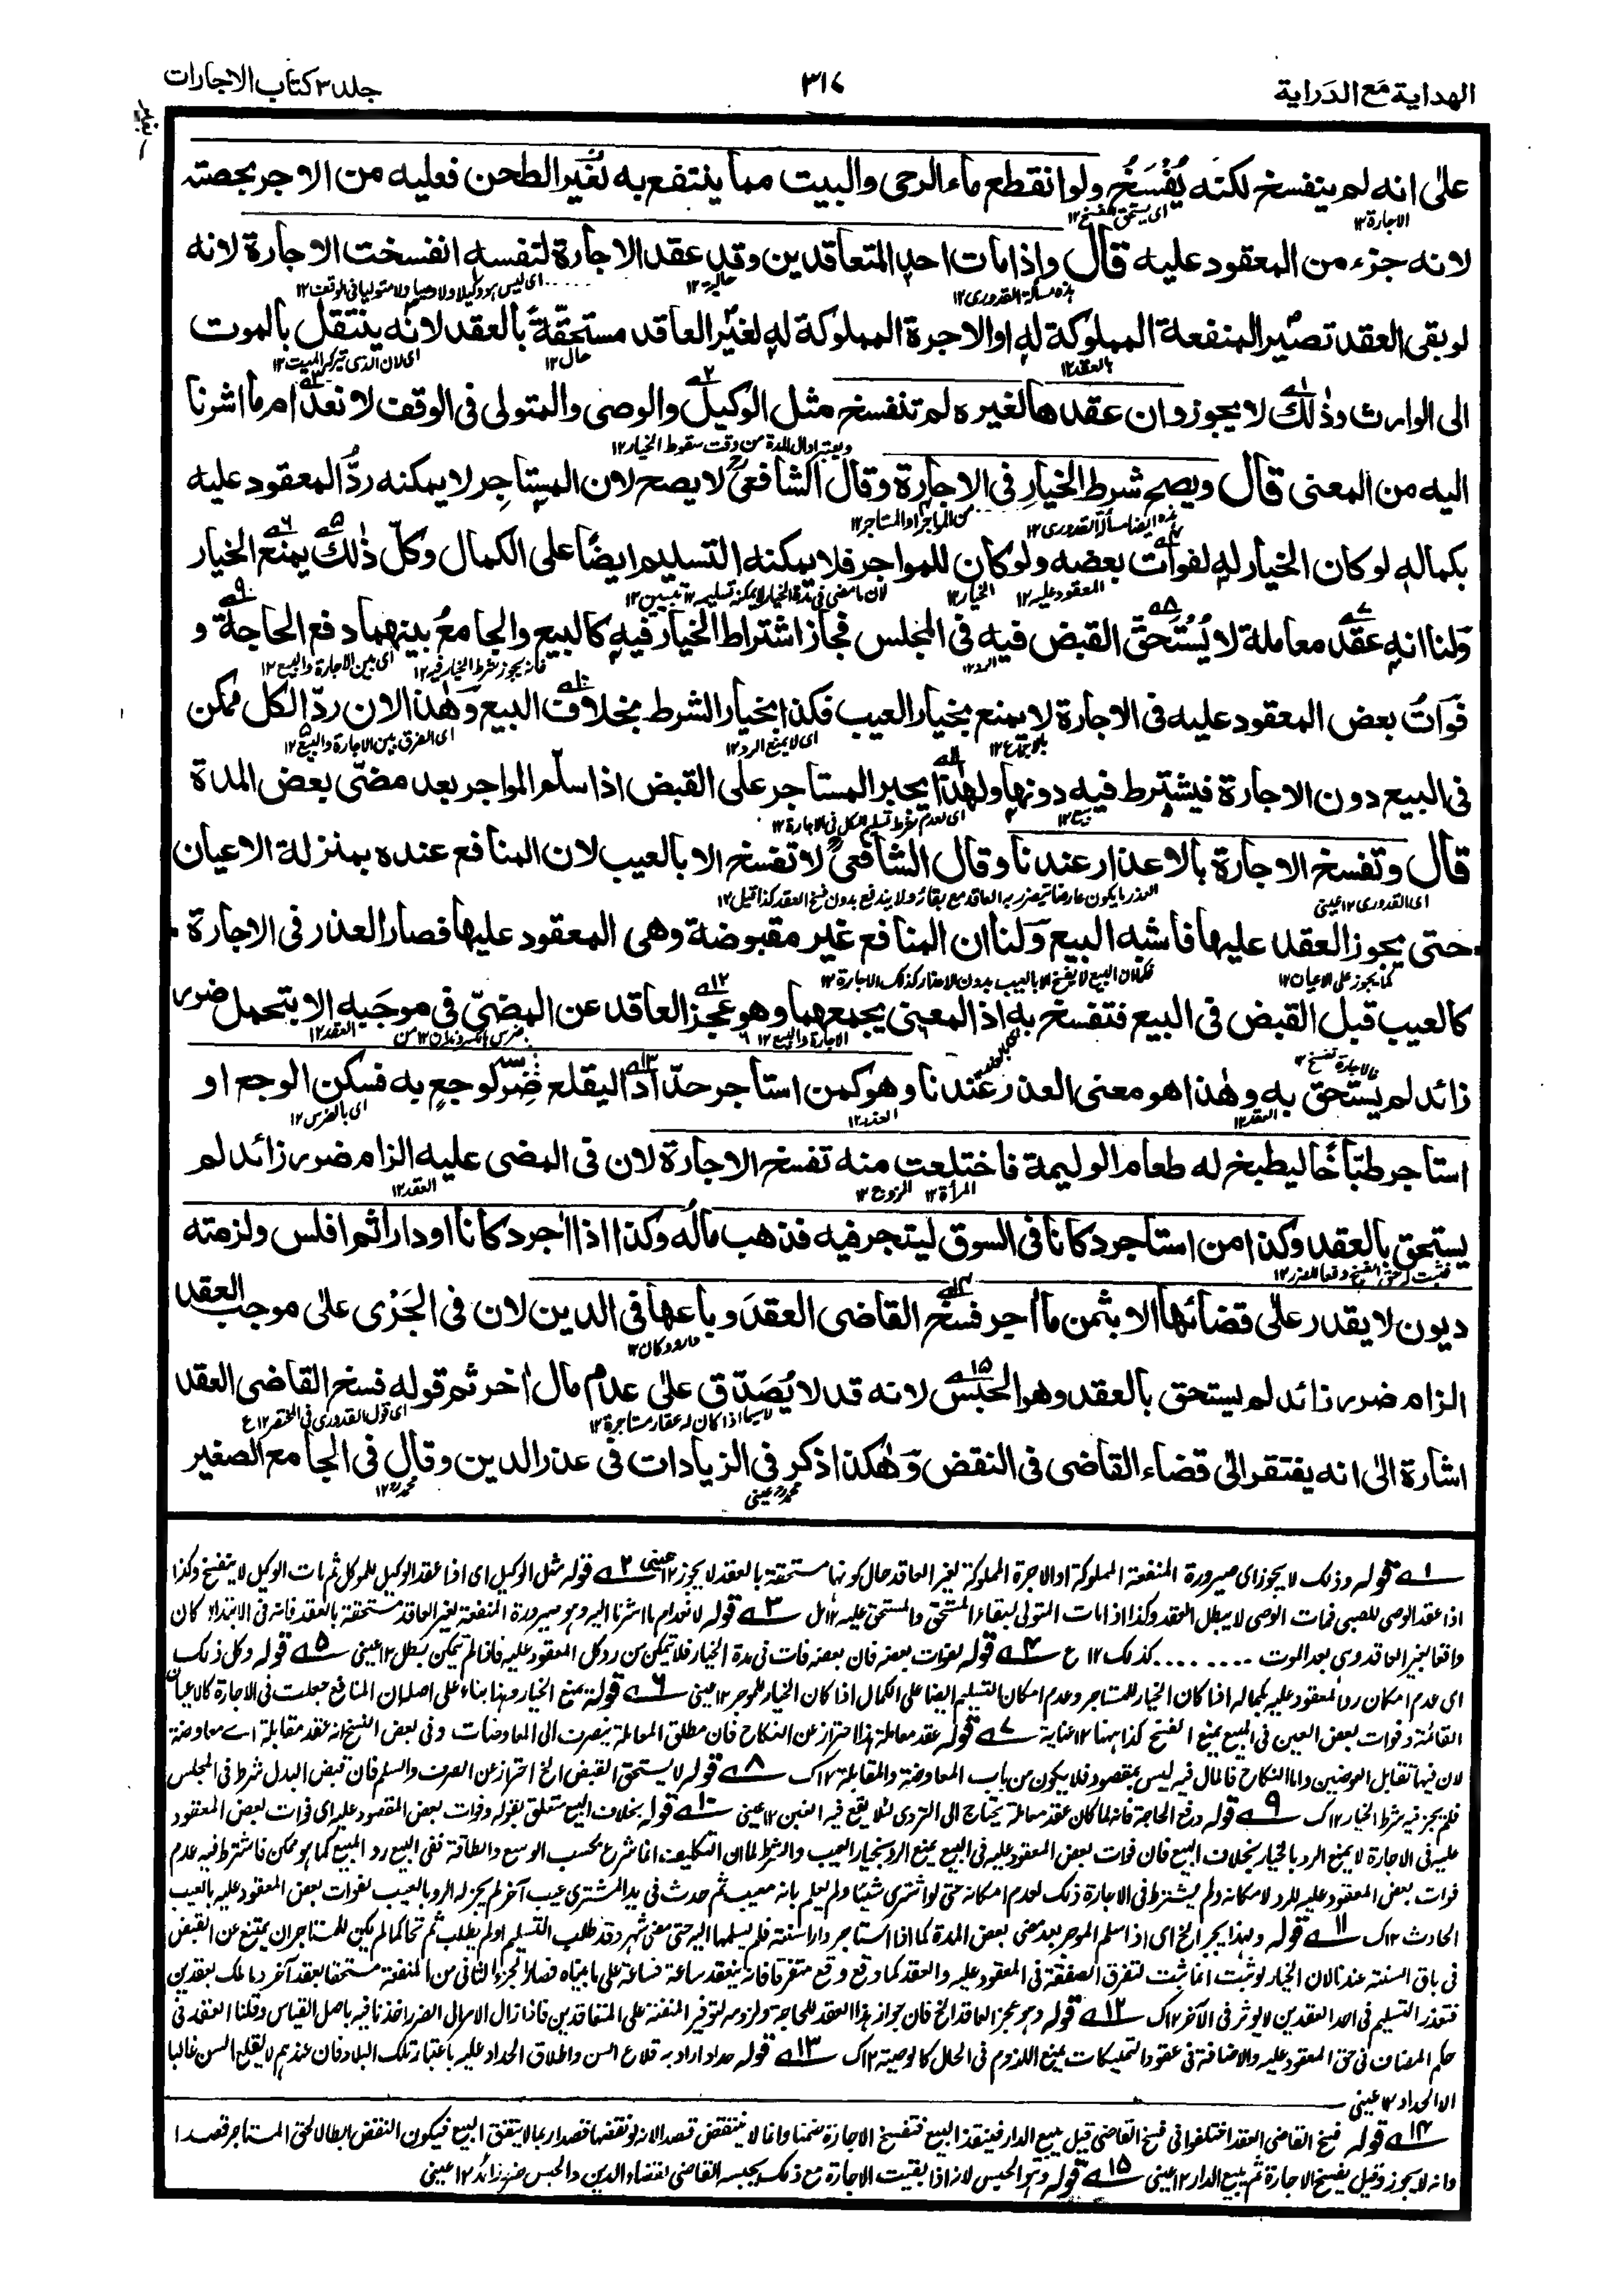 الهداية مع الدراية
٣١٧
جلد ٣ كتاب الاجارات
على انه لم ينفسخ لكنه يُفْسَخُ ولو انقطع ماء الرحى والبيت مما ينتفع به لغير الطحن فعليه من الاجر بحصته
الاجارة ١٢
اى يستحق الفسخ ١٢
لانه جزء من المعقود عليه قال واذا مات احد المتعاقدين وقد عقد الاجارة لنفسه انفسخت الاجارة لانه
هذه مسألة القدورى ١٢
حالية ١٢
اى ليس هو وكيلا ولا وصيا ولا متوليا فى الوقف ١٢
لو بقى العقد تصير المنفعة المملوكة له او الاجرة المملوكة له لغير العاقد مستحقةً بالعقد لانه ينتقل بالموت
بالعقد ١٢
حال ١٢
اى لان الذى تركه الميت ١٢
الى الوارث وذٰلك لا يجوز وان عقدها لغيره لم تنفسخ مثل الوكيل والوصى والمتولى فى الوقف لانعدام ما اشرنا
ويعتبر اول المدة من وقت سقوط الخيار ١٢
اليه من المعنى قال ويصح شرط الخيار فى الاجارة وقال الشافعىؒ لا يصح لان المستاجر لا يمكنه ردُّ المعقود عليه
هذه ايضا مسألة القدورى ١٢
من المواجر او المستاجر ١٢
بكماله لو كان الخيار له لفوات بعضه ولو كان للمواجر فلا يمكنه التسليم ايضًا على الكمال وكلّ ذٰلك يمنع الخيار
المعقود عليه ١٢
الخيار ١٢
لان ما مضى فى مدة الخيار لا يمكنه تسليمه ١٢ تبيين ١٢
ولنا انه عقد معاملة لا يُسْتَحَقّ القبض فيه فى المجلس فجاز اشتراط الخيار فيه كالبيع والجامعُ بينهما دفع الحاجة و
الرد ١٢
فانه يجوز شرط الخيار فيه ١٢
اى بين الاجارة والبيع ١٢
فَوَاتُ بعض المعقود عليه فى الاجارة لا يمنع بخيار العيب فكذا بخيار الشرط بخلاف البيع وهٰذا لان ردّ الكل ممكن
بالاجماع ١٢
اى لا يمنع الرد ١٢
اى الفرق بين الاجارة والبيع ١٢
فى البيع دون الاجارة فيشترط فيه دونها ولهذا يجبر المستاجر على القبض اذا سلّم المواجر بعد مضىّ بعض المدة
بيع ١٢
اى لعدم شرط تسليم الكل فى الاجارة ١٢
قال وتفسخ الاجارة بالاعذار عندنا وقال الشافعىؒ لا تفسخ الا بالعيب لان المنافع عنده بمنزلة الاعيان
اى القدورى ١٢ عينى
العذر ما يكون عارضا يتضرر به العاقد مع بقائه ولا يندفع بدون فسخ العقد كذا قيل ١٢
حتى يجوز العقد عليها فاشبه البيع ولنا ان المنافع غير مقبوضة وهى المعقود عليها فصار العذر فى الاجارة
كما يجوز على الاعيان ١٢
فكما ان البيع لا يفسخ الا بالعيب بدون الاعذار كذلك الاجارة ١٢
كالعيب قبل القبض فى البيع فتفسخ به اذ المعنى يجمعهما وهو عجز العاقد عن المضىّ فى موجَبه الا بتحمل ضرر
الاجارة والبيع ١٢
العقد ١٢
زائد لم يستحق به وهٰذا هو معنى العذر عندنا وهو كمن استاجر حدّادا ليقلع ضرسه لوجعٍ به فسكن الوجع او
فالاجارة تفسخ ١٢
العقد ١٢
العذر ١٢
اى بالضرس ١٢
استاجر طبّاخًا ليطبخ له طعام الوليمة فاختلعت منه تفسخ الاجارة لان فى المضى عليه الزام ضرر زائد لم
المرأة ١٢
الزوج ١٢
العقد ١٢
يستحق بالعقد وكذا من استاجر دكانا فى السوق ليتجر فيه فذهب مالُه وكذا اذا اٰجر دكانا او دارا ثم افلس ولزمته
فيثبت له حق الفسخ دفعا للضرر ١٢
ديون لا يقدر على قضائها الا بثمن ما اٰجر فسخ القاضى العقدَ وباعها فى الدين لان فى الجَرْى على موجب العقد
دار و دكان ١٢
الزام ضرر زائد لم يستحق بالعقد وهو الحبس لانه قد لا يُصَدّق على عدم مال اٰخر ثم قوله فسخ القاضى العقد
لا سيما اذا كان له عقار مستاجرة ١٢
اى قول القدورى فى المختصر ١٢ ع
اشارة الى انه يفتقر الى قضاء القاضى فى النقض وهٰكذا ذكر فى الزيادات فى عذر الدين وقال فى الجامع الصغير
محمدؒ عينى
محمدؒ ١٢
١ قوله وذلك لا يجوز اى صيرورة المنفعة المملوكة او الاجرة المملوكة لغير العاقد حال كونها مستحقة بالعقد لا يجوز ١٢ عينى ٢ قوله مثل الوكيل اى اذا عقد الوكيل للموكل ثم مات الوكيل لا ينفسخ وكذا
اذا عقد الوصى للصبى فمات الوصى لا يبطل العقد وكذا اذا مات المتولى لبقاء المستحق والمستحق عليه ١٢ ٣ قوله لانعدام ما اشرنا اليه وهو صيرورة المنفعة لغير العاقد مستحقة بالعقد فانه فى الابتداء كان
واقعا لغير العاقد وهى بعد الموت ........ كذلك ١٢ ع ٤ قوله لفوات بعضه فان بعضه فات فى مدة الخيار فلا يتمكن من رد كل المعقود عليه فاذا لم يتمكن بطل ١٢ عينى ٥ قوله وكل ذلك
اى عدم امكان رد المعقود عليه بكماله اذا كان الخيار للمستاجر وعدم امكان التسليم ايضا على الكمال اذا كان الخيار للموجر ١٢ عينى ٦ قوله يمنع الخيار وهذا بناء على اصله ان المنافع جعلت فى الاجارة كالاعيان
القائمة وفوات بعض العين فى البيع يمنع الفسخ كذا ههنا ١٢ عناية ٧ قوله عقد معاملة هذا احتراز عن النكاح فان مطلق المعاملة ينصرف الى المعاوضات وفى بعض النسخ انه عقد مقابلة اے معاوضة
لان فيها تقابل العوضين واما النكاح فالمال فيه ليس بمقصود فلا يكون من باب المعاوضة والمقابلة ١٢ ك ٨ قوله لا يستحق القبض الخ احتراز عن الصرف والسلم فان قبض البدل شرط فى المجلس
فلم يجز فيه شرط الخيار ١٢ ك ٩ قوله دفع الحاجة فانه لما كان عقد معاملة يحتاج الى التروى لئلا يقع فيه الغبن ١٢ عينى ١٠ قوله بخلاف البيع متعلق بقوله وفوات بعض المقصود عليه اى فوات بعض المعقود
عليه فى الاجارة لا يمنع الرد بالخيار بخلاف البيع فان فوات بعض المعقود عليه فى البيع يمنع الرد بخيار العيب والشرط لما ان التكليف انما شرع بحسب الوسع والطاقة ففى البيع رد المبيع كما هو ممكن فاشترط فيه عدم
فوات بعض المعقود عليه للرد لامكانه ولم يشترط فى الاجارة ذلك لعدم امكانه حتى لو اشترى شيئا ولم يعلم بانه معيب ثم حدث فى يد المشترى عيب آخر لم يجز له الرد بالعيب لفوات بعض المعقود عليه بالعيب
الحادث ١٢ ك ١١ قوله ولهذا يجبر الخ اى اذا سلم الموجر بعد مضى بعض المدة كما اذا استاجر دارا سنة فلم يسلمها اليه حتى مضى شهر وقد طلب التسليم او لم يطلب ثم تحاكما لم يكن للمستاجر ان يمتنع عن القبض
فى باقى السنة عندنا لان الخيار لو ثبت انما ثبت لتفرق الصفقة فى المعقود عليه والعقد كما وقع وقع متفرقا فانه ينعقد ساعة فساعة على ما بيناه فصار الجزء الثانى من المنفعة مستحقا بعقد آخر وما ملك بعقدين
فتعذر التسليم فى احد العقدين لا يوثر فى الآخر ١٢ ك ١٢ قوله وهو عجز العاقد الخ فان جواز هذا العقد للحاجة ولزومه لتوفير المنفعة على المتعاقدين فاذا زال الامر الى الضرر اخذنا فيه باصل القياس وقلنا العقد فى
حكم المضاف فى حق المعقود عليه والاضافة فى عقود التمليكات يمنع اللزوم فى الحال كالوصية ١٢ ك ١٣ قوله حدادا اراد به قلاع السن واطلاق الحداد عليه باعتبار تلك البلاد فان عندهم لا يقلع السن غالبا
الا الحداد ١٢ عينى
١٤ قوله فسخ القاضى العقد اختلفوا فى فسخ القاضى قيل يبيع الدار فينفذ البيع فتفسخ الاجارة ضمنا وانما لا ينتقض قصدا لانه لو نقضها قصدا ربما لا يتفق البيع فيكون النقض ابطالا لحق المستاجر قصدا
وانه لا يجوز وقيل يفسخ الاجارة ثم يبيع الدار ١٢ عينى ١٥ قوله وهو الحبس لانه اذا بقيت الاجارة مع ذلك يحبسه القاضى لقضاء الدين والحبس ضرر زائد ١٢ عينى